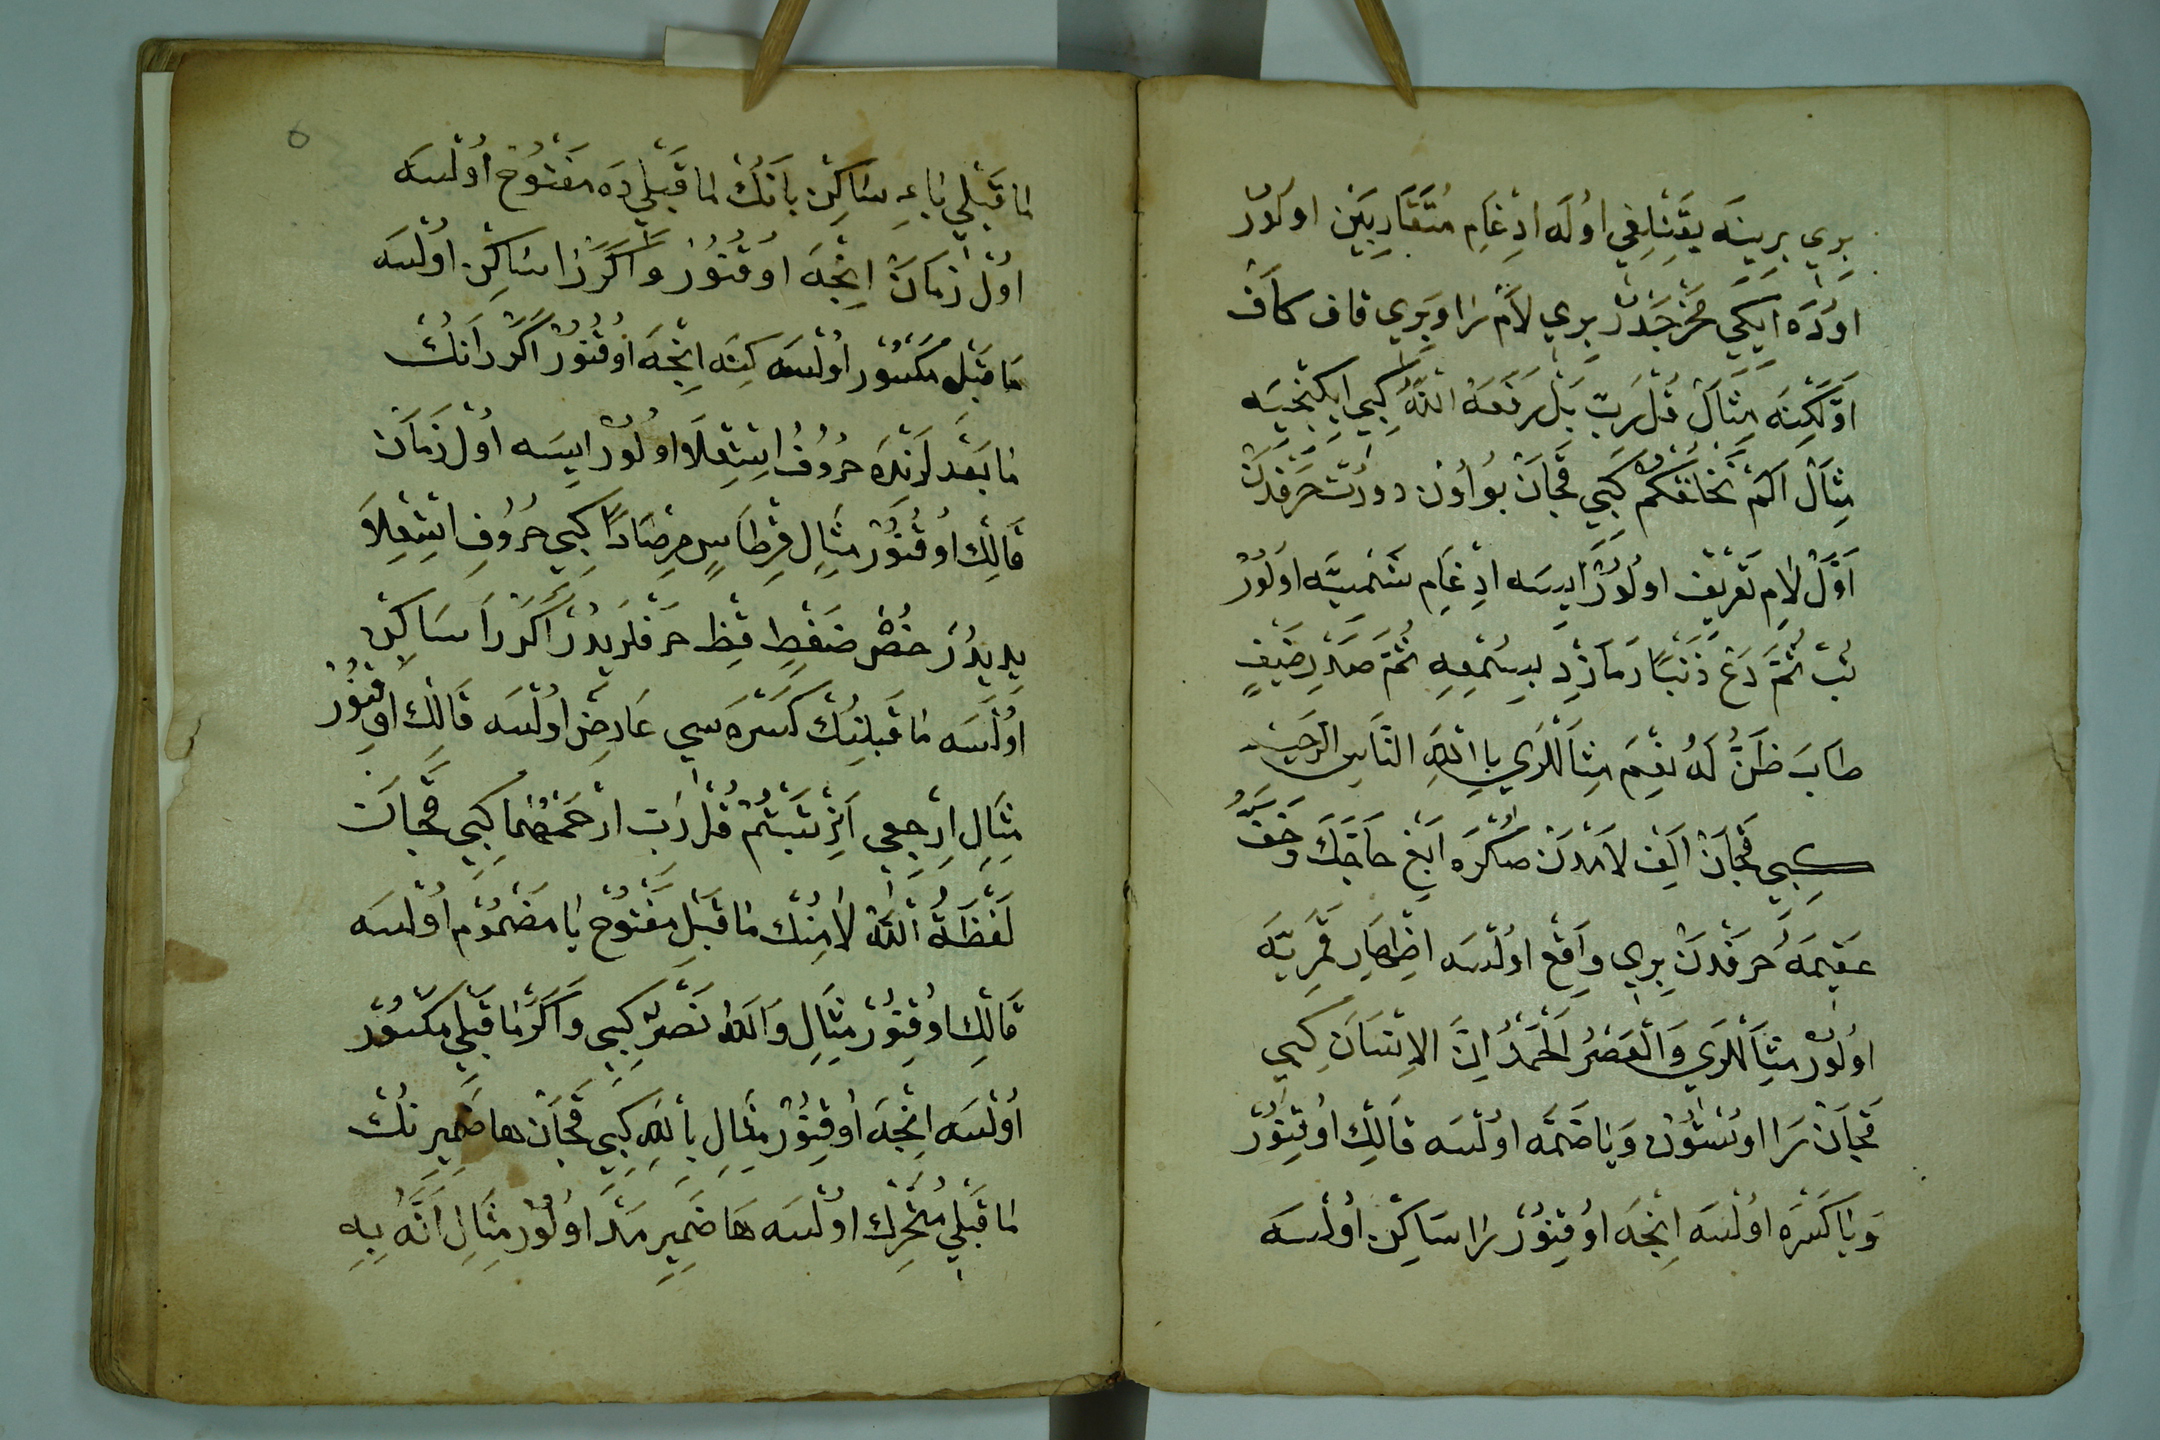 بِرِي بِرِينَه يَقِنْلِغِي اوُلَه اِدْغَامِ مُتَقَارِبَيْن اولوُرْ
اوُدَه ايكِي مَخْرَجَدُرْ بِرِي لاَمْ رَا وَبِرِي قاف كاَفْ
اَوَّلْكِنَه مِثَالْ قُلْ رَبِّ بَلْ رَفَعَهُ اللّٰهُ كِبِي ايكِنْجِيَه
مِثَالْ اَلَمْ نَخْلُقْكُمْ كِبِي قَچَانْ بوُ اوُنْ دورْتْ حَرْفدَنْ
اَوَّلْ لاٰمِ تَعْرِيفْ اوُلوُرْ اِيسَه ادِغَامِ شَمْسِيَّه اوُلوُرْ
تُبْ ثُمَّ دَعْ ذَنْبًا رَمَا زِدْ سُمْعَةً شُمَّ صَدْرَ ضَيْفٍ
طَابَ ظَنُّ لَهُ نِعَمْ مِثَاللَرِي بِا اللّٰهِ النَّاسِ الرَّحِيمِ
كِبِي قَچَانْ اَلِفْ لاَمْدَنْ صڭرَه اَبْغِ حَجَّكَ وَخَفْ
عَقِيمَهُ حَرْفدَنْ بِرِي وَاقِعْ اوُلْسَه اِظْهَارِ قَمَرِيَّه
اوُلوُرْ مِثَاللَرِي وَالْعَصْرِ الْحَمْدُ اِنَّ الاِنْسَانَ كِبِي
قَچَانْ رَا اوُسْتوُنْ وَيَا ضَمَّه اوُلْسَه قَالِڭْ اوُقِنوُرْ
وَيَا كَسْرَه اوُلْسَه اِنْجَه اوُقِنوُرْ رَا سَاكِنْ اوُلْسَه
مَا قَبْلِي يَاءِ سَاكِنْ يَا نُڭْ مَا قَبْلِي دَه مَفْتوُحْ اوُلْسَه
اوُلْ زَمَانْ اِنْجَه اوُقُنوُرْ وَاَكَرْ رَا سَاكِنْ اوُلْسَه
مَا قَبْلِ مَكْسوُرْ اوُلْسَه كِنَه اِنْجَه اوُقُنوُرْ اَكَرْ رَانُڭْ
مَا بَعْدَلَرِنْدَه حُرُوُفُ اِسْتِعْلَا اوُلوُرْ اِيسَه اوُلْ زَمَانْ
قَالِڭ اوُقُنوُرْ مِثَالِ قِرْطَاسٍ مِرْصَادًا كِبِي حُرُوُفِ اِسْتِعْلَا
يِدِيدُرْ خُصَّ ضَغْطٍ قِظْ حَرْفلَرِيدُرْ اَكَرْ رَا سَاكِنْ
اوُلْسَه مَا قَبْلِنُڭْ كَسْرَه سِي عَارِضْ اوُلْسَه قَالِڭْ اوُقِنوُرْ
مِثَالِ اِرْجِعِي اِنِ ارْتَبْتُمْ قُلْ رَبِّ ارْحَمْهُمَا كِبِي قَچَانْ
لَفْظَةُ اللّٰهْ لاَمِنُڭْ مَا قَبْلِ مَفْتوُحْ يَا مَضْموُمْ اوُلْسَه
قَالِڭْ اوُقِنوُرْ مِثَالِ وَاللّٰهُ نَصْرُ كِبِي وَاَكَرْ مَا قَبْلِي مَكْسوُرْ
اوُلْسَه اِنْجَه اوُقِنوُرْ مِثَالِ بِاللّٰهِ كِبِي قَچَانْ هَا ضَمِيرِنُڭْ
مَا قَبْلِي مُتَحَرِّكْ اوُلْسَه هَا ضَمِيرِ مَدَّ اوُلوُرْ مِثَالِ اَنَّهُ بِهِ